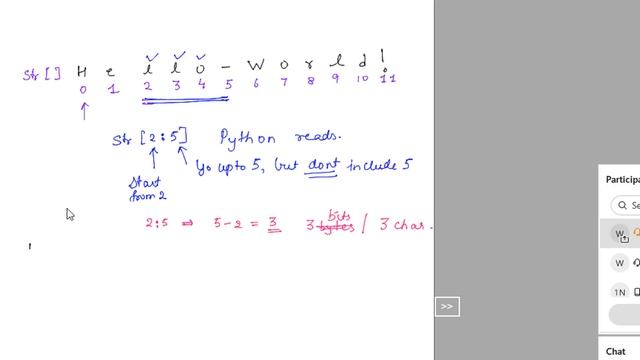 Str [ ] H e l l o - W o r l d !
0 1 2 3 4 5 6 7 8 9 10 11
Str [2:5] Python reads.
Start from 2
Go upto 5, but dont include 5
2:5 ⇒ 5-2 = 3 3 bytes bits / 3 char.
>>
Participa
Se
W
W
1N
Chat